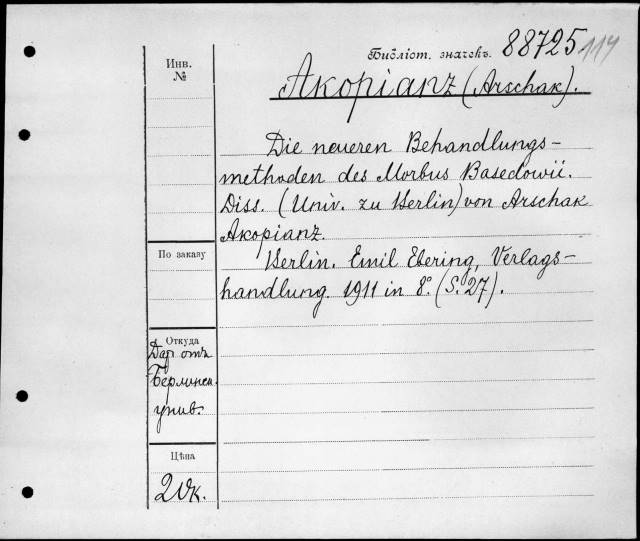 Библіот. значекъ. 88725 114
Инв.
№
Akopianz (Arschak).
Die neueren Behandlungs-
methoden des Morbus Basedowii.
Diss. (Univ. zu Berlin) von Arschak
Akopianz.
По заказу
Berlin. Emil Ebering, Verlags-
handlung. 1911 in 8º. (S. 27).
Откуда
Даръ отъ
Берлинск.
унив.
Цѣна
20к.